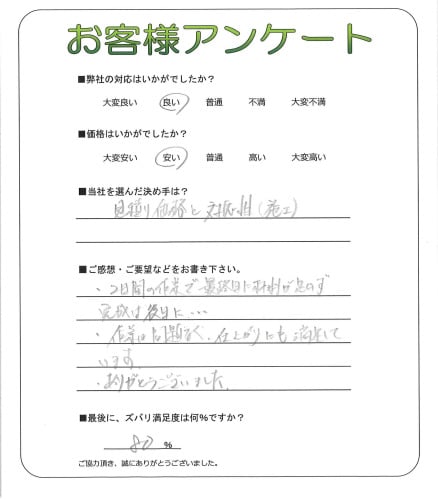 お客様アンケート
■弊社の対応はいかがでしたか？
大変良い 良い 普通 不満 大変不満
■価格はいかがでしたか？
大変安い 安い 普通 高い 大変高い
■当社を選んだ決め手は？
見積り価格と対応(施工)
■ご感想・ご要望などをお書き下さい。
・2日間の作業で最終日に材料が足のず
完成は後日に…
・作業は問題なく、仕上がりにも満足して
います。
・ありがとうございました。
■最後に、ズバリ満足度は何%ですか？
80 %
ご協力頂き、誠にありがとうございました。